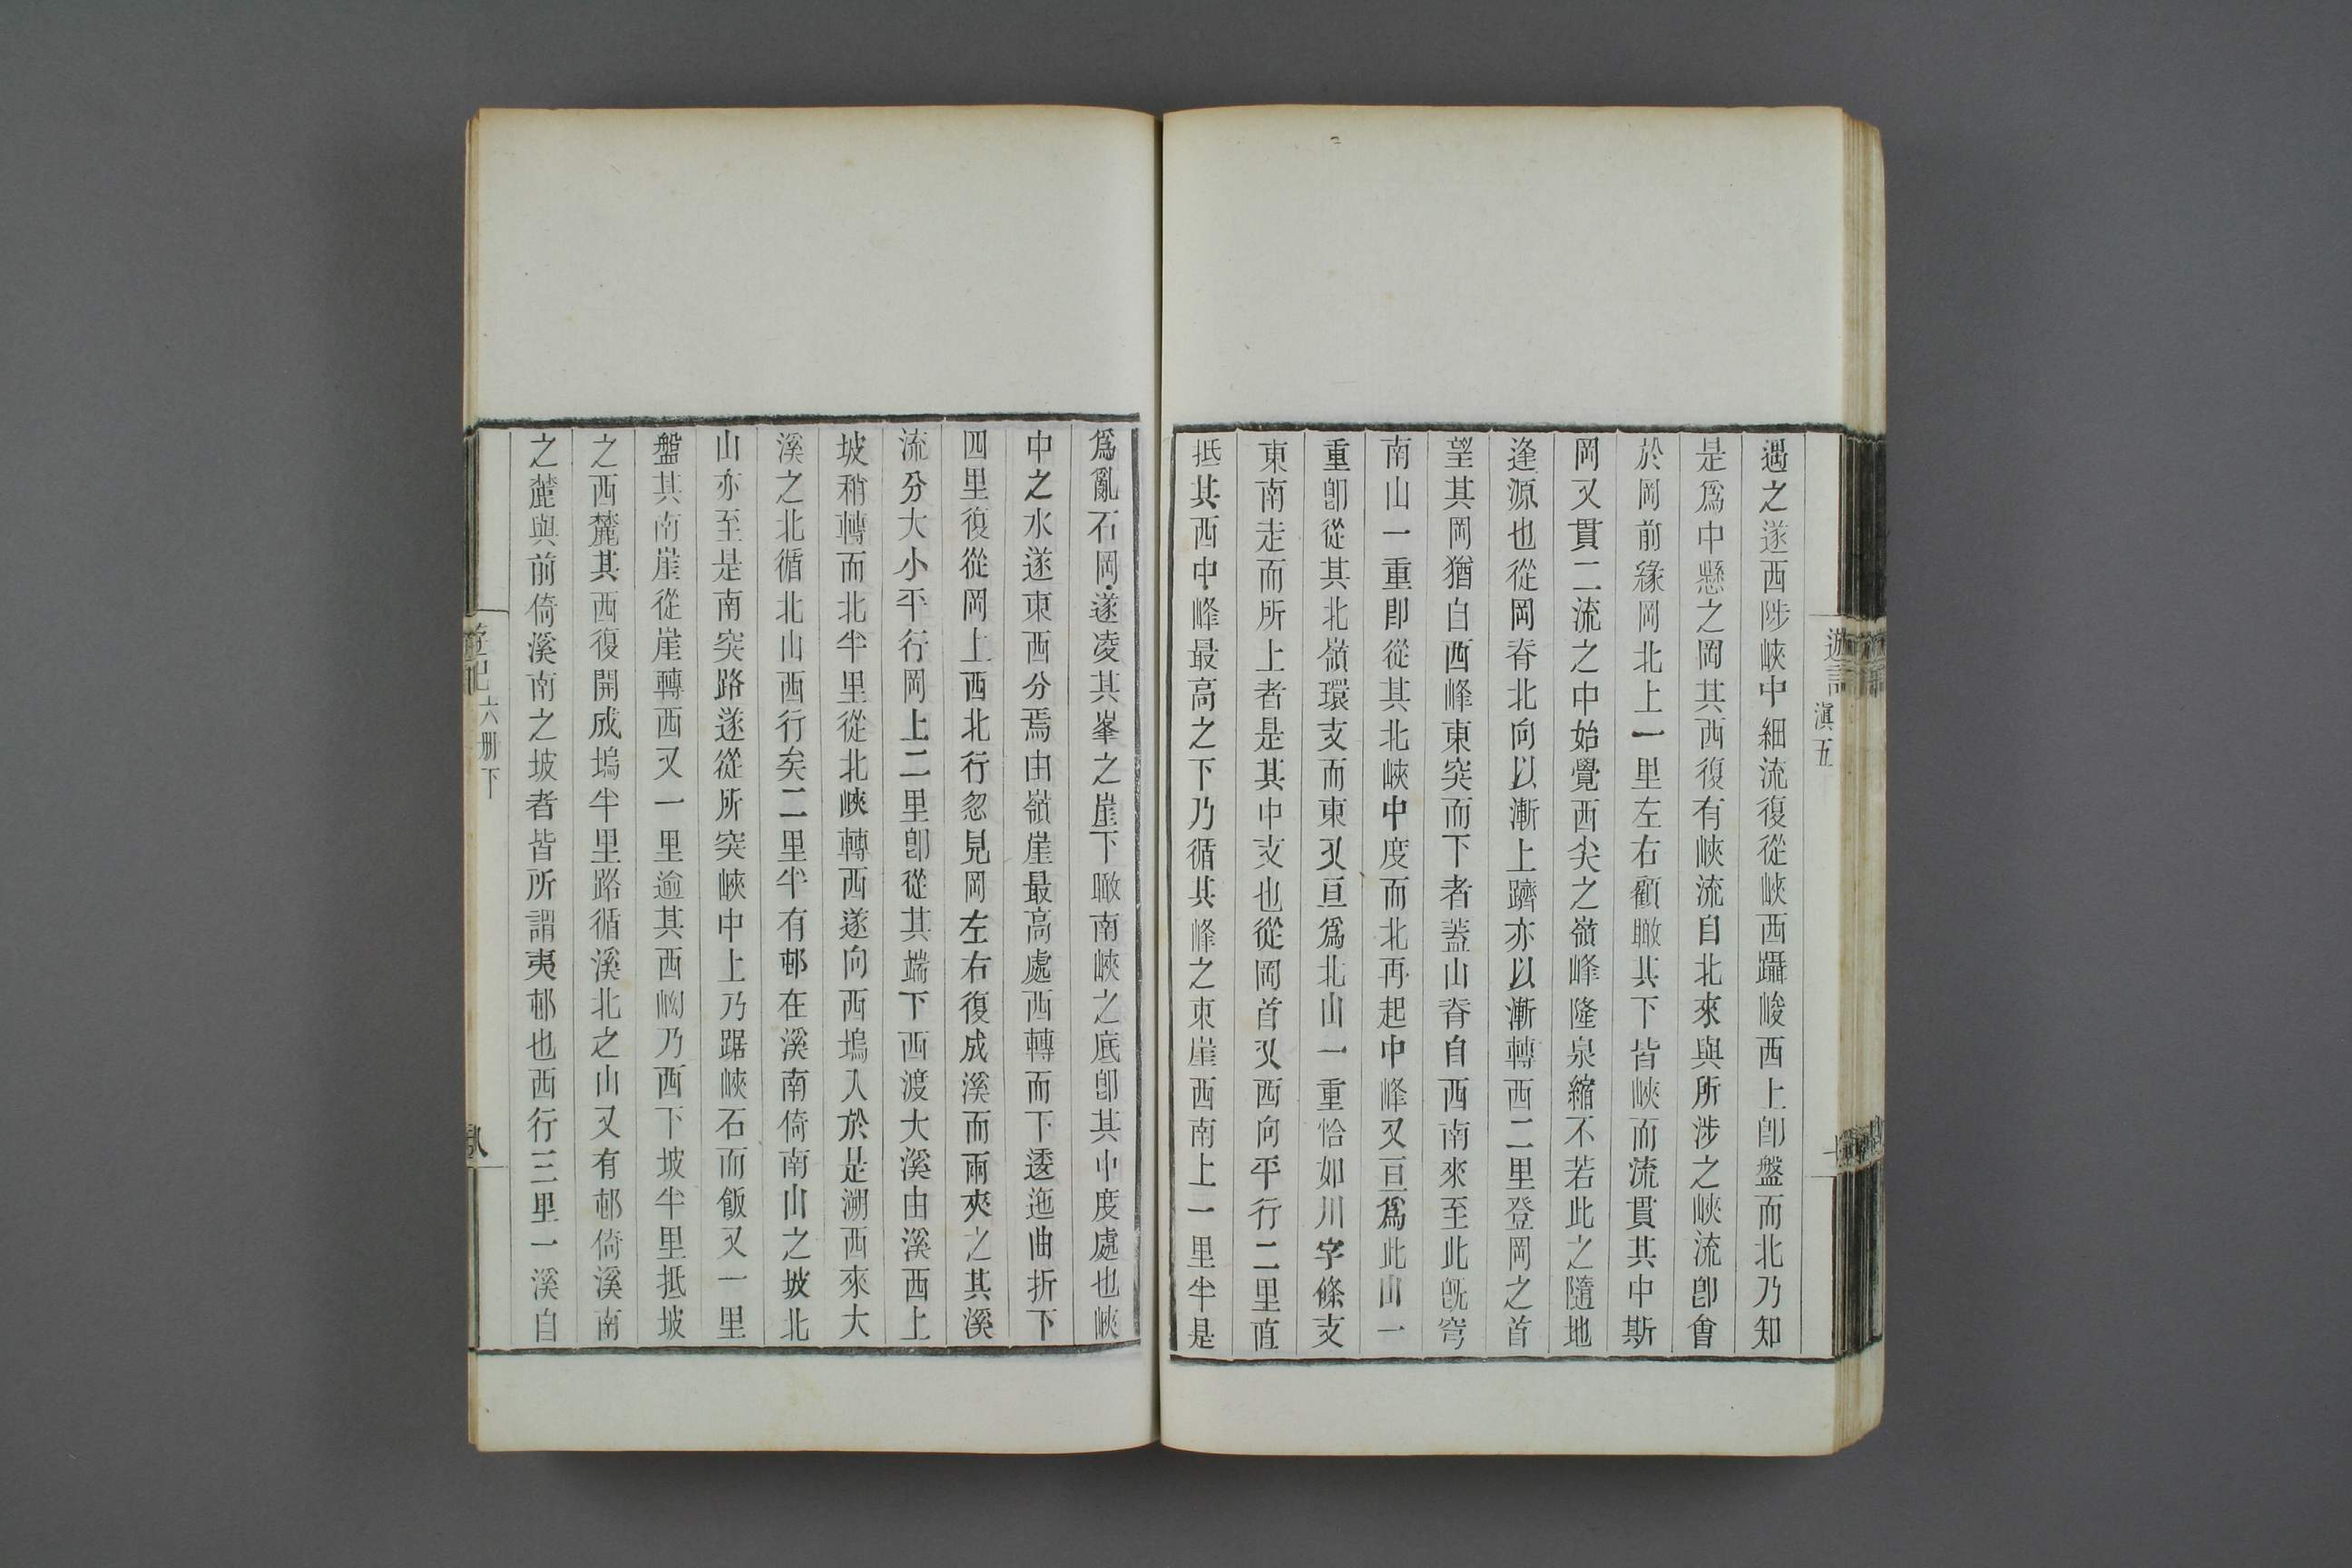 遊記
滇五
遇之遂西陟峽中細流復從峽西躡峻西上卽盤而北乃知
是爲中懸之岡其西復有峽流自北來與所涉之峽流卽會
於岡前緣岡北上一里左右顧瞰其下皆峽而流貫其中斯
岡又貫二流之中始覺西尖之嶺峰隆泉縮不若此之隨地
逢源也從岡脊北向以漸上躋亦以漸轉西二里登岡之首
望其岡猶自西峰東突而下者蓋山脊自西南來至此旣穹
南山一重卽從其北峽中度而北再起中峰又亘爲此山一
重卽從其北嶺環支而東又亘爲北山一重恰如川字條支
東南走而所上者是其中支也從岡首又西向平行二里直
抵其西中峰最高之下乃循其峰之東崖西南上一里半是
爲亂石岡遂凌其峯之崖下瞰南峽之底卽其中度處也峽
中之水遂東西分焉由嶺崖最高處西轉而下逶迤曲折下
四里復從岡上西北行忽見岡左右復成溪而兩夾之其溪
流分大小平行岡上二里卽從其端下西渡大溪由溪西上
坡稍轉而北半里從北峽轉西遂向西塢入於是溯西來大
溪之北循北山西行矣二里半有邨在溪南倚南山之坡北
山亦至是南突路遂從所突峽中上乃踞峽石而飯又一里
盤其南崖從崖轉西又一里逾其西坳乃西下坡半里抵坡
之西麓其西復開成塢半里路循溪北之山又有邨倚溪南
之麓與前倚溪南之坡者皆所謂夷邨也西行三里一溪自
六册下
八